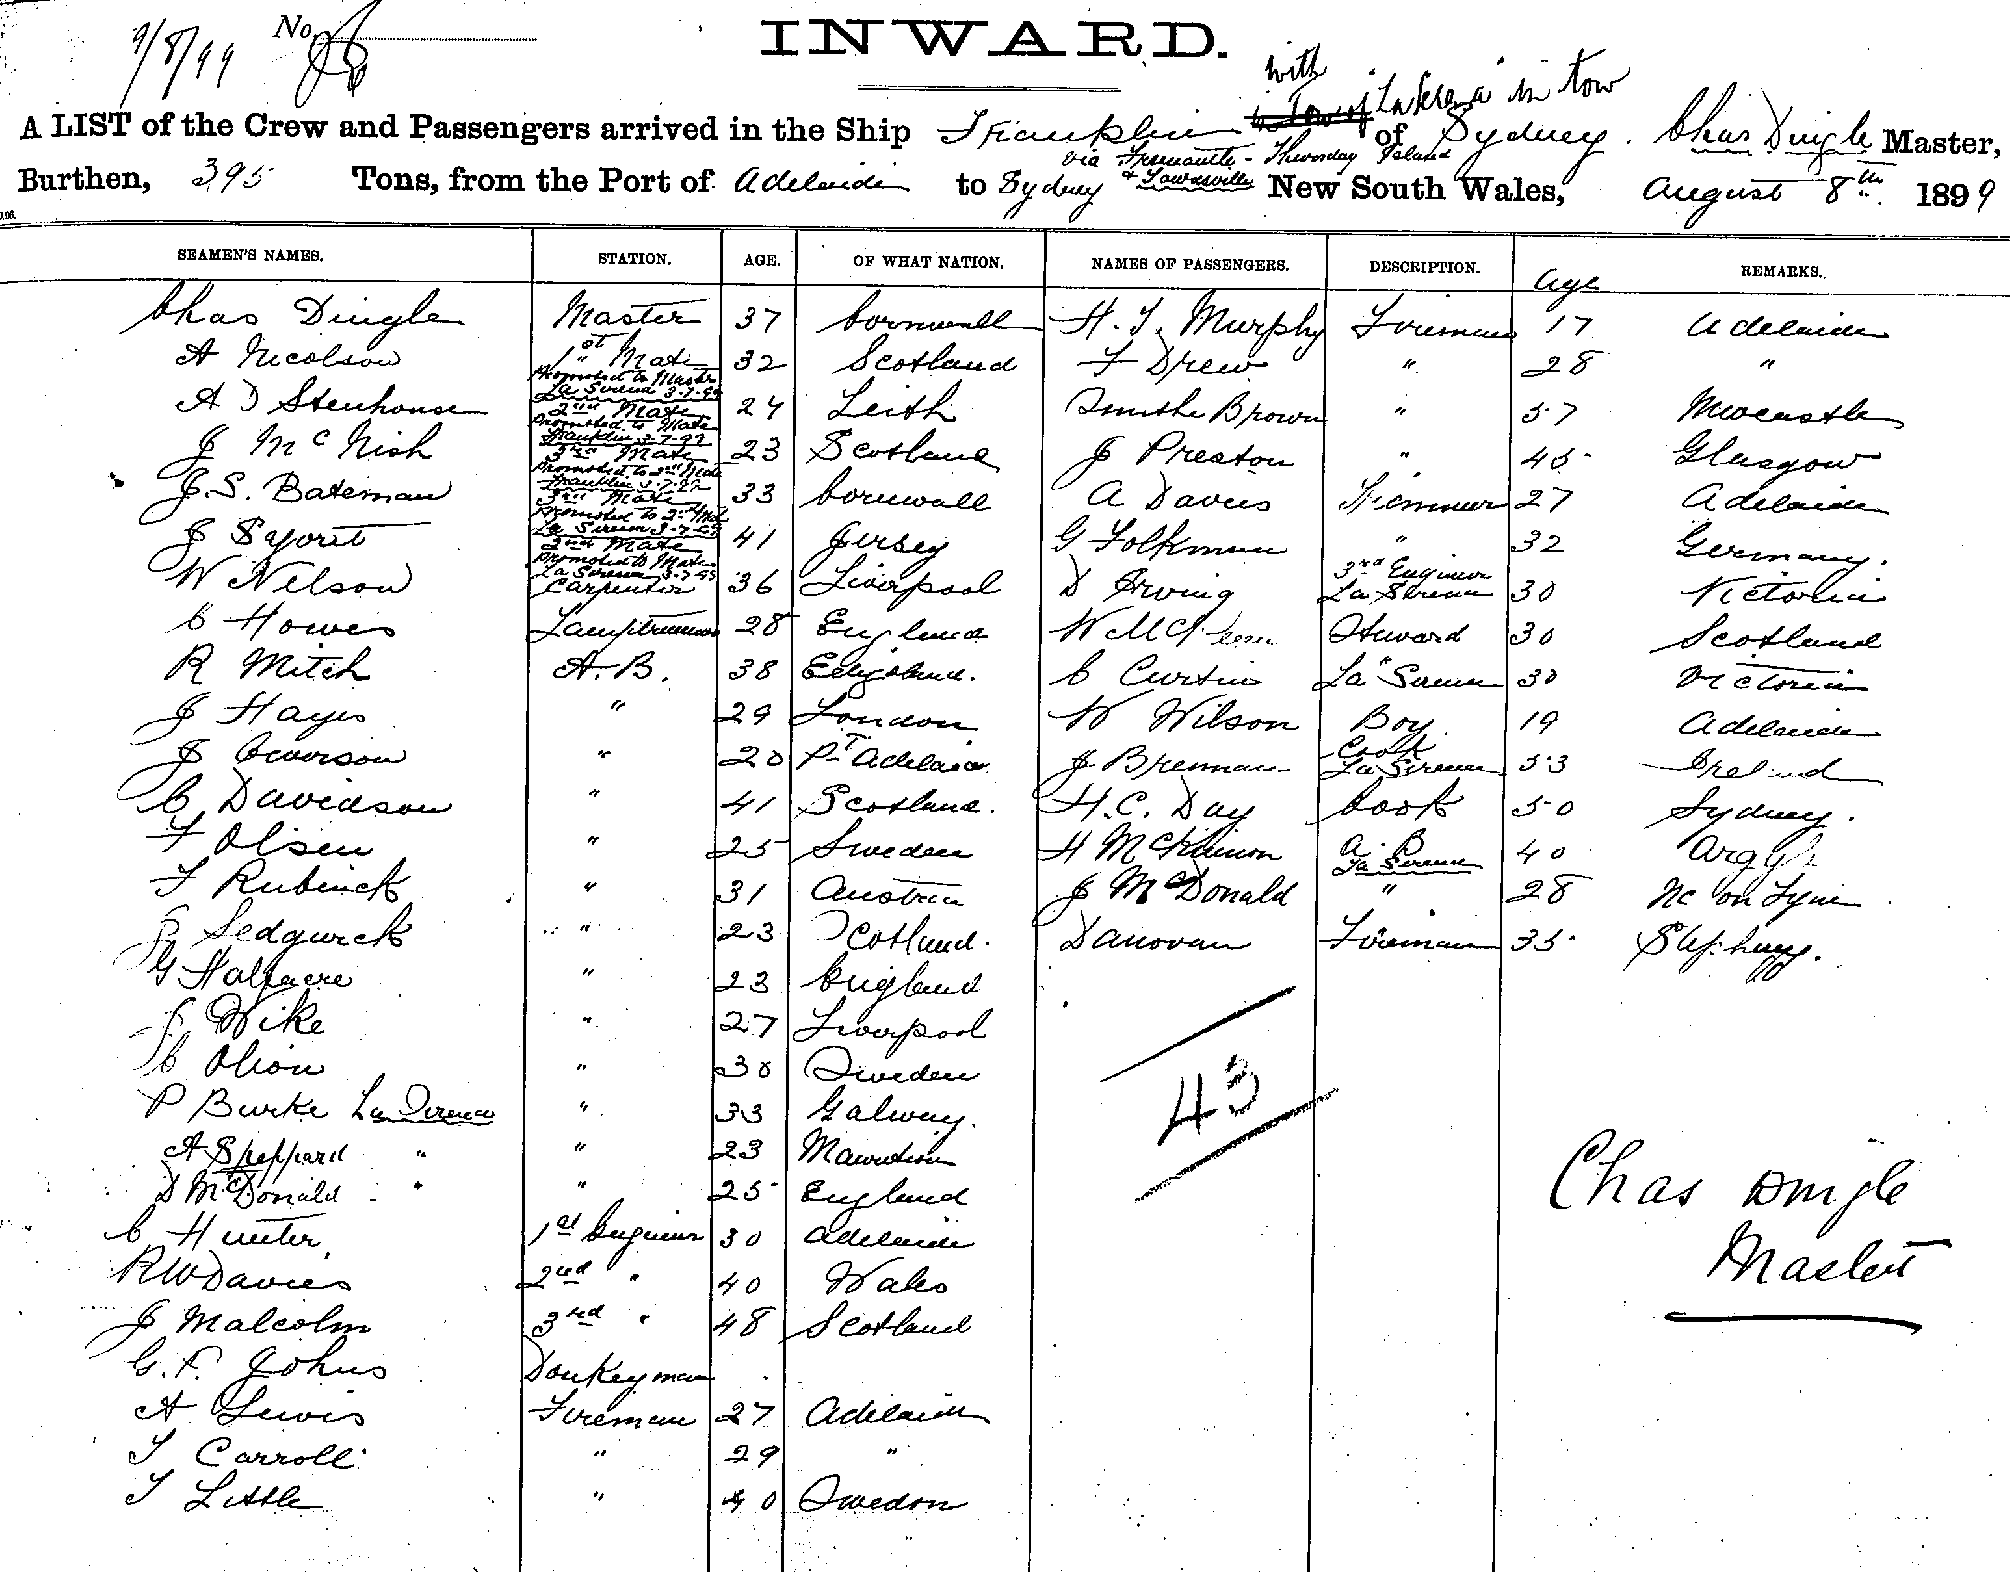 9/8/99 No
INWARD.
with
"La Serena" in tow
A LIST of the Crew and Passengers arrived in the Ship Franklin of Sydney. Chas Dingle Master,
via Fremantle - Thursday Island
Burthen, 395 Tons, from the Port of Adelaide to Sydney & Townsville New South Wales, August 8th 1899
SEAMEN'S NAMES. STATION. AGE. OF WHAT NATION. NAMES OF PASSENGERS. DESCRIPTION. Age REMARKS.
Chas Dingle Master 37 Cornwall H. J. Murphy Fireman 17 Adelaide
A Nicolson 1st Mate promoted to Master La Serena 3-7-99 32 Scotland F Drew " 28 "
A D Stenhouse 2nd Mate promoted to Mate Franklin 3-7-99 24 Leith Brown " 57 Newcastle
J McNish 3rd Mate promoted to 2nd Mate Franklin 3-7-99 23 Scotland J Preston " 45 Glasgow
J. S. Bateman 3rd Mate promoted to 2nd Mate La Serena 3-7-99 33 Cornwall A Davies Trimmer 27 Adelaide
J Syvret 2nd Mate promoted to Mate La Serena 3-7-99 41 Jersey G Folkman " 32 Germany.
W Nelson Carpenter 36 Liverpool D Irving 3rd Engineer La Serena 30 Victoria
C Howes Lamptrimmer 28 England W Steward 30 Scotland
R Mitch A.B. 38 England. C Curtin La Serena 30 Victoria
J Hayes " 29 London W Wilson Boy 19 Adelaide
J " 20 Pt Adelaide J Brennan Cook La Serena 53 Ireland
C Davidson " 41 Scotland. H. C. Day Cook 50 Sydney.
F Olsen " 25 Sweden H McKinnon A. B La Serena 40 Argyle
F Rubinck " 31 Austria J McDonald " 28 Nc on Tyne
Sedgwick " 23 Scotland. Danovan Fireman 35
G Halfacre " 23 England
J Wike " 27 Liverpool
C " 30 Sweden
P Burke La Serena " 33 Galway.
A Sheppard " " 23
D McDonald " " 25 England
C Hunter 1st Engineer 30 Adelaide
R W Davies 2nd " 40 Wales
J Malcolm 3rd " 48 Scotland
G. F. Johns Donkeyman
A Lewis Fireman 27 Adelaide
T Carroll " 29 "
T Little " 40 Sweden
43
Chas Dingle
Master